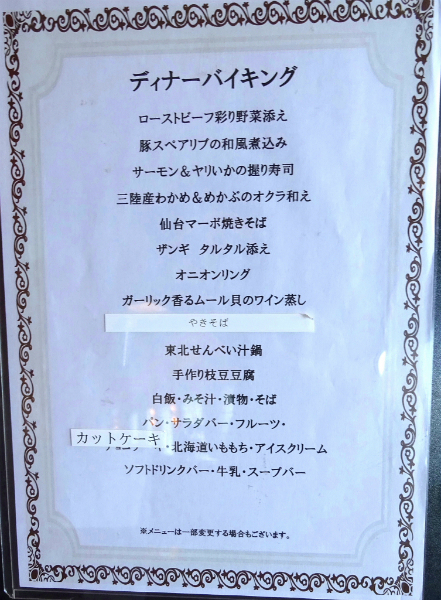 ディナーバイキング
ローストビーフ彩り野菜添え
豚スペアリブの和風煮込み
サーモン＆ヤリいかの握り寿司
三陸産わかめ＆めかぶのオクラ和え
仙台マーボ焼きそば
ザンギ タルタル添え
オニオンリング
ガーリック香るムール貝のワイン蒸し
やきそば
東北せんべい汁鍋
手作り枝豆豆腐
白飯・みそ汁・漬物・そば
パン・サラダバー・フルーツ・
カットケーキ ・北海道いももち・アイスクリーム
ソフトドリンクバー・牛乳・スープバー
※メニューは一部変更する場合もございます。